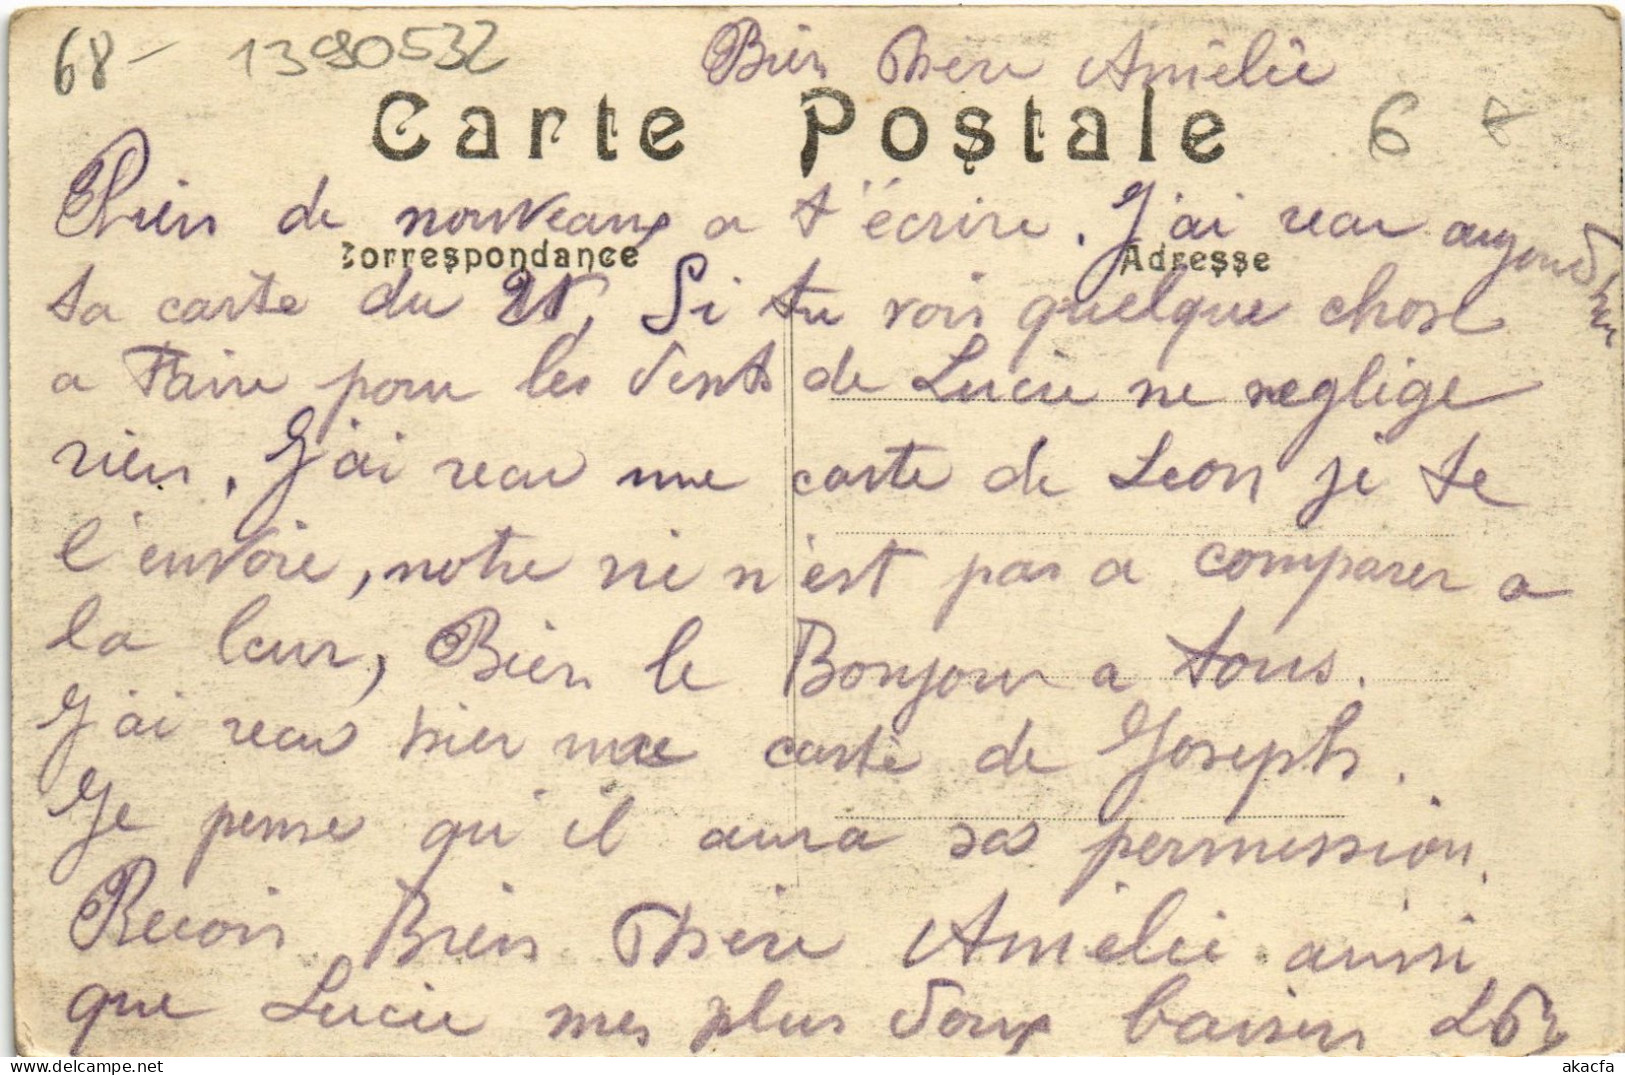 68- 1390532
Bien Chère Amélie
Carte Postale
6
Rien de nouveaux a t'écrire. J'ai recu aujourd'hui
Correspondance Adresse
ta carte du 21, Si tu vois quelque chose
a Faire pour les dents de Lucie ne neglige
rien. J'ai recu une carte de Leon je te
l'envoie, notre vie n'est pas a comparer a
la leur, Bien le Bonjour a tous.
J'ai recu hier une carte de Joseph.
Je pense qu'il aura sa permission.
Recois Bien Chère Amélie ainsi
que Lucie mes plus doux baisers
akacfa
delcampe.net